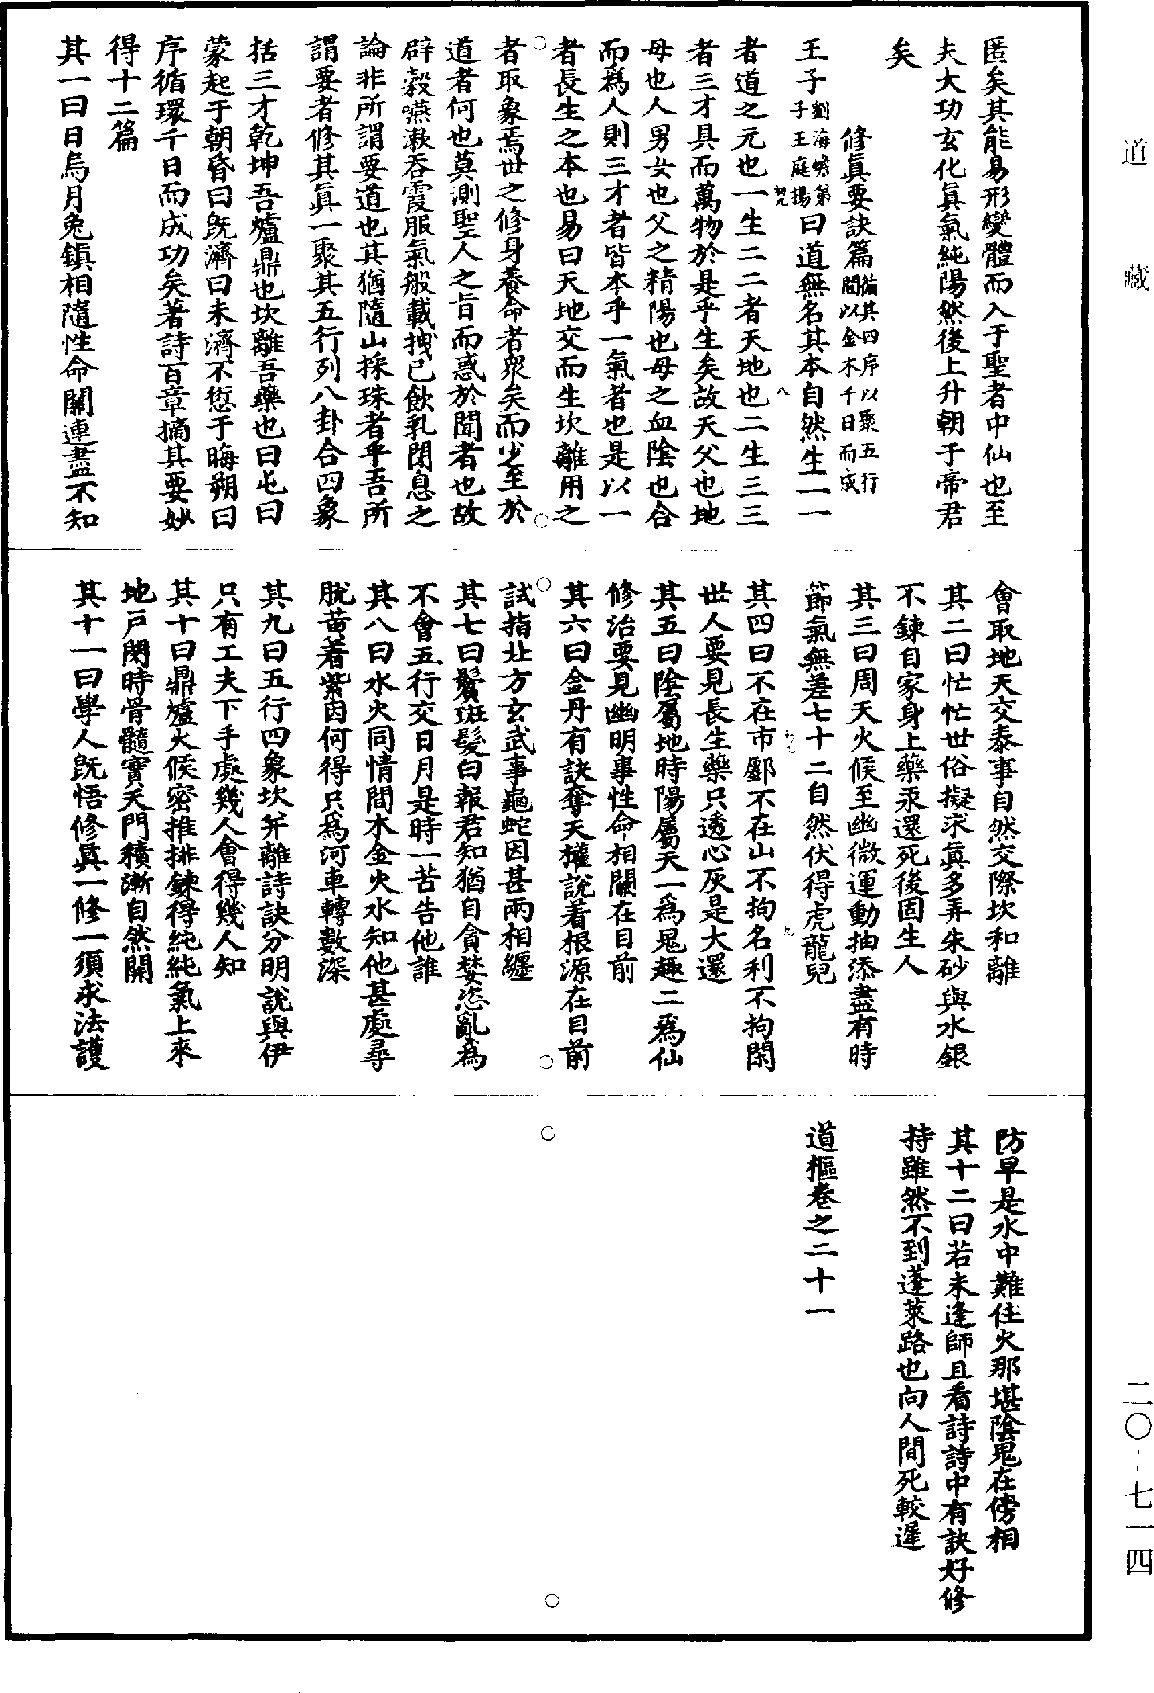 道藏
匿矣其能易形變體而入于聖者中仙也至
夫大功玄化真氣純陽然後上升朝于帝君
矣
修真要訣篇循其四序以聚五行
間以金木千日而成
王子劉海蟾弟
子王庭揚曰道無名其本自然生一一
者道之元也一生二二者天地也二生三三
者三才具而萬物於是乎生矣故天父也地
母也人男女也父之精陽也母之血陰也合
而爲人則三才者皆本乎一氣者也是以一
者長生之本也易曰天地交而生坎離用之
者取象焉世之修身養命者衆矣而少至於
道者何也莫測聖人之旨而惑於聞者也故
辟穀嚥漱吞霞服氣般載拽已飲乳閉息之
論非所謂要道也其猶隨山採珠者乎吾所
謂要者修其真一聚其五行列八卦合四象
括三才乾坤吾爐鼎也坎離吾藥也曰屯曰
蒙起于朝昏曰既濟曰未濟不愆于晦朔曰
序循環千日而成功矣著詩百章摘其要妙
得十二篇
其一曰日烏月兔鎮相隨性命關連盡不知
會取地天交泰事自然交際坎和離
其二曰忙忙世俗擬求真多弄朱砂與水銀
不鍊自家身上藥汞還死後固生人
其三曰周天火候至幽微運動抽添盡有時
節氣無差七十二自然伏得虎龍兒
其四曰不在市鄽不在山不拘名利不拘閑
世人要見長生藥只透心灰是大還
其五曰陰屬地時陽屬天一爲鬼趣二爲仙
修治要見幽明事性命相關在目前
其六曰金丹有訣奪天權說着根源在目前
試指北方玄武事龜蛇因甚兩相纏
其七曰鬢斑髮白報君知猶自貪婪恣亂爲
不會五行交日月是時一苦告他誰
其八曰水火同情間木金火水知他甚處尋
脫黃着紫因何得只爲河車轉數深
其九曰五行四象坎并離詩訣分明說與伊
只有工夫下手處幾人會得幾人知
其十曰鼎爐火候密推排鍊得純純氣上來
地戶閉時骨髓實天門積漸自然開
其十一曰學人既悟修真一修一須求法護
防早是水中難住火那堪陰鬼在傍相
其十二曰若未逢師且看詩詩中有訣好修
持雖然不到蓬萊路也向人間死較遲
道樞卷之二十一
二〇--七一四